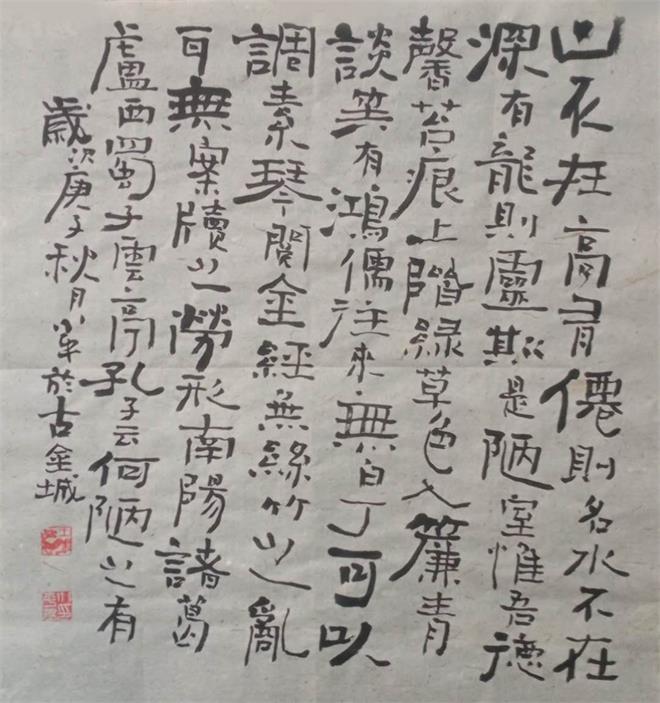 山不在高有僊則名水不在
深有龍則靈斯是陋室惟吾德
馨苔痕上階綠草色入簾青
談笑有鴻儒往來無白丁可以
調素琴閱金經無絲竹之亂
耳無案牘之勞形南陽諸葛
盧西蜀子雲亭孔子云何陋之有
歲次庚子秋月於古金城